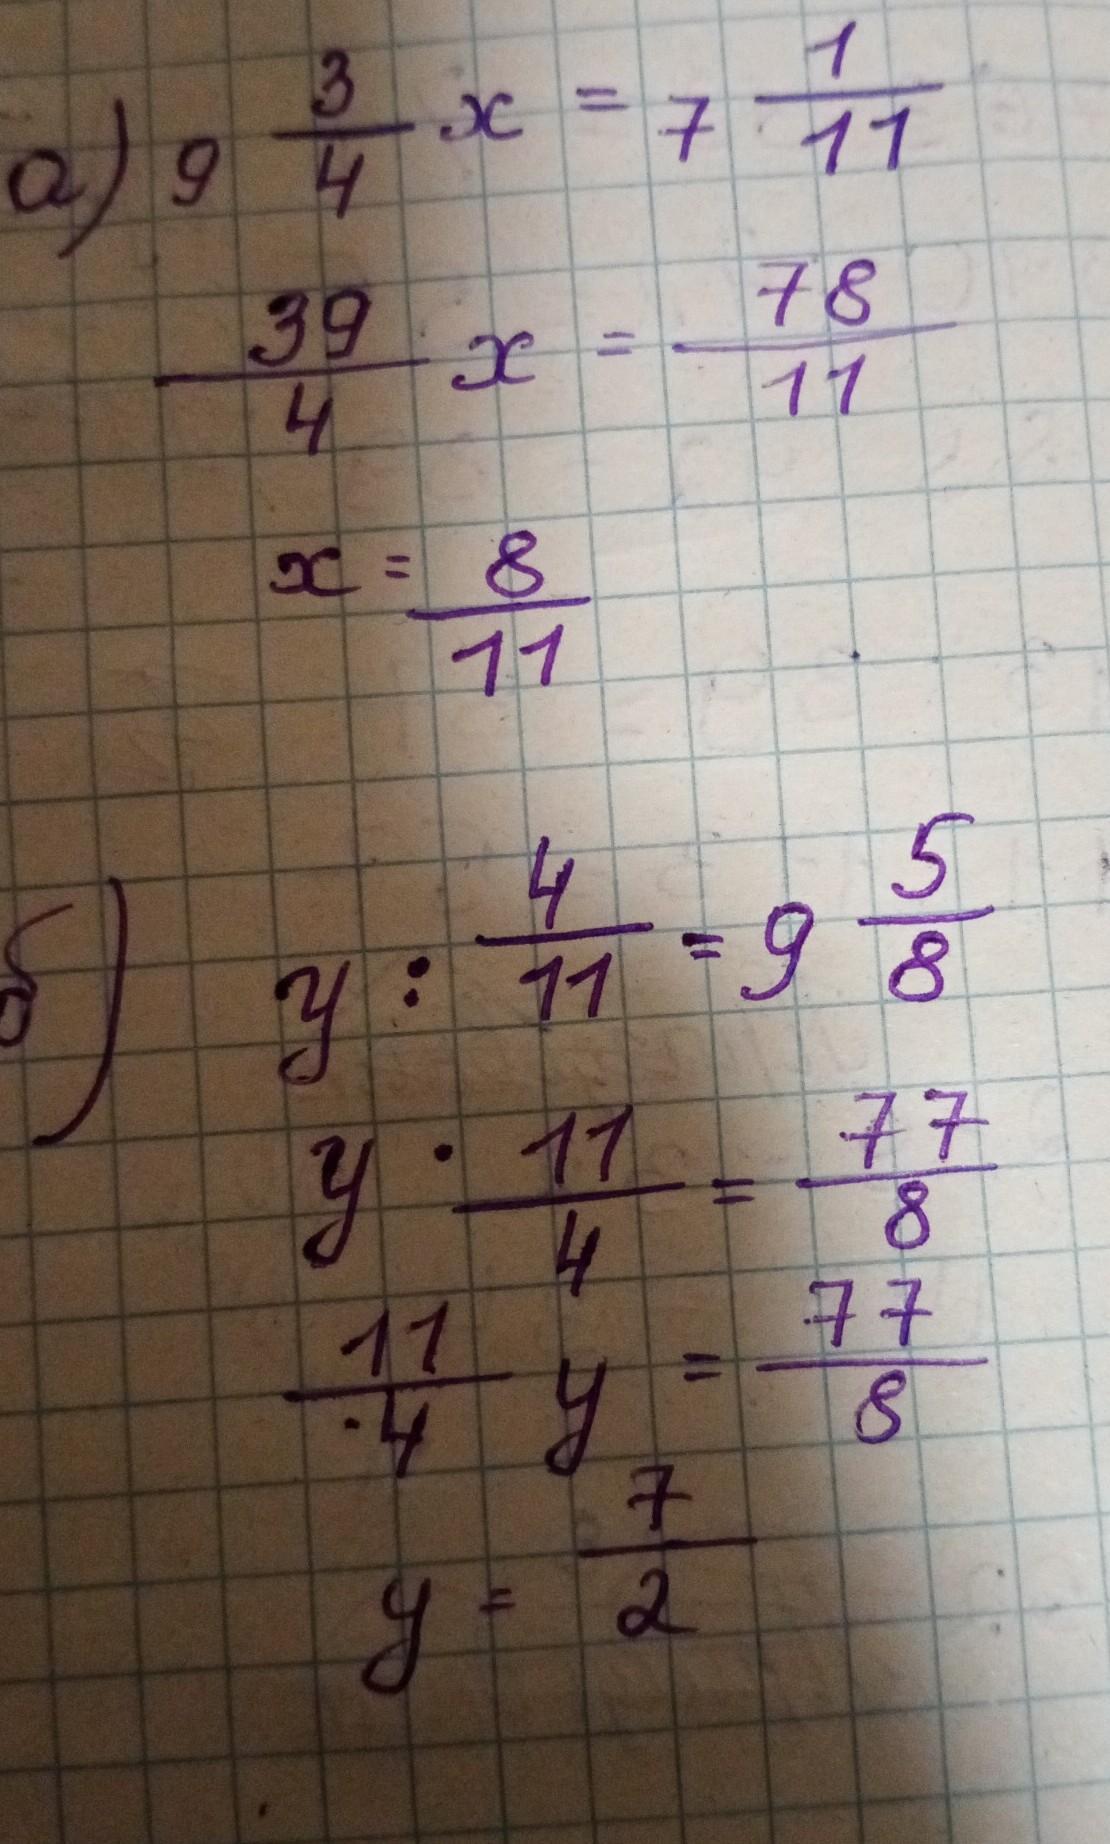 а) 9 3/4 x = 7 1/11
39/4 x = 78/11
x = 8/11
б) y : 4/11 = 9 5/8
y · 11/4 = 77/8
11/4 y = 77/8
y = 7/2